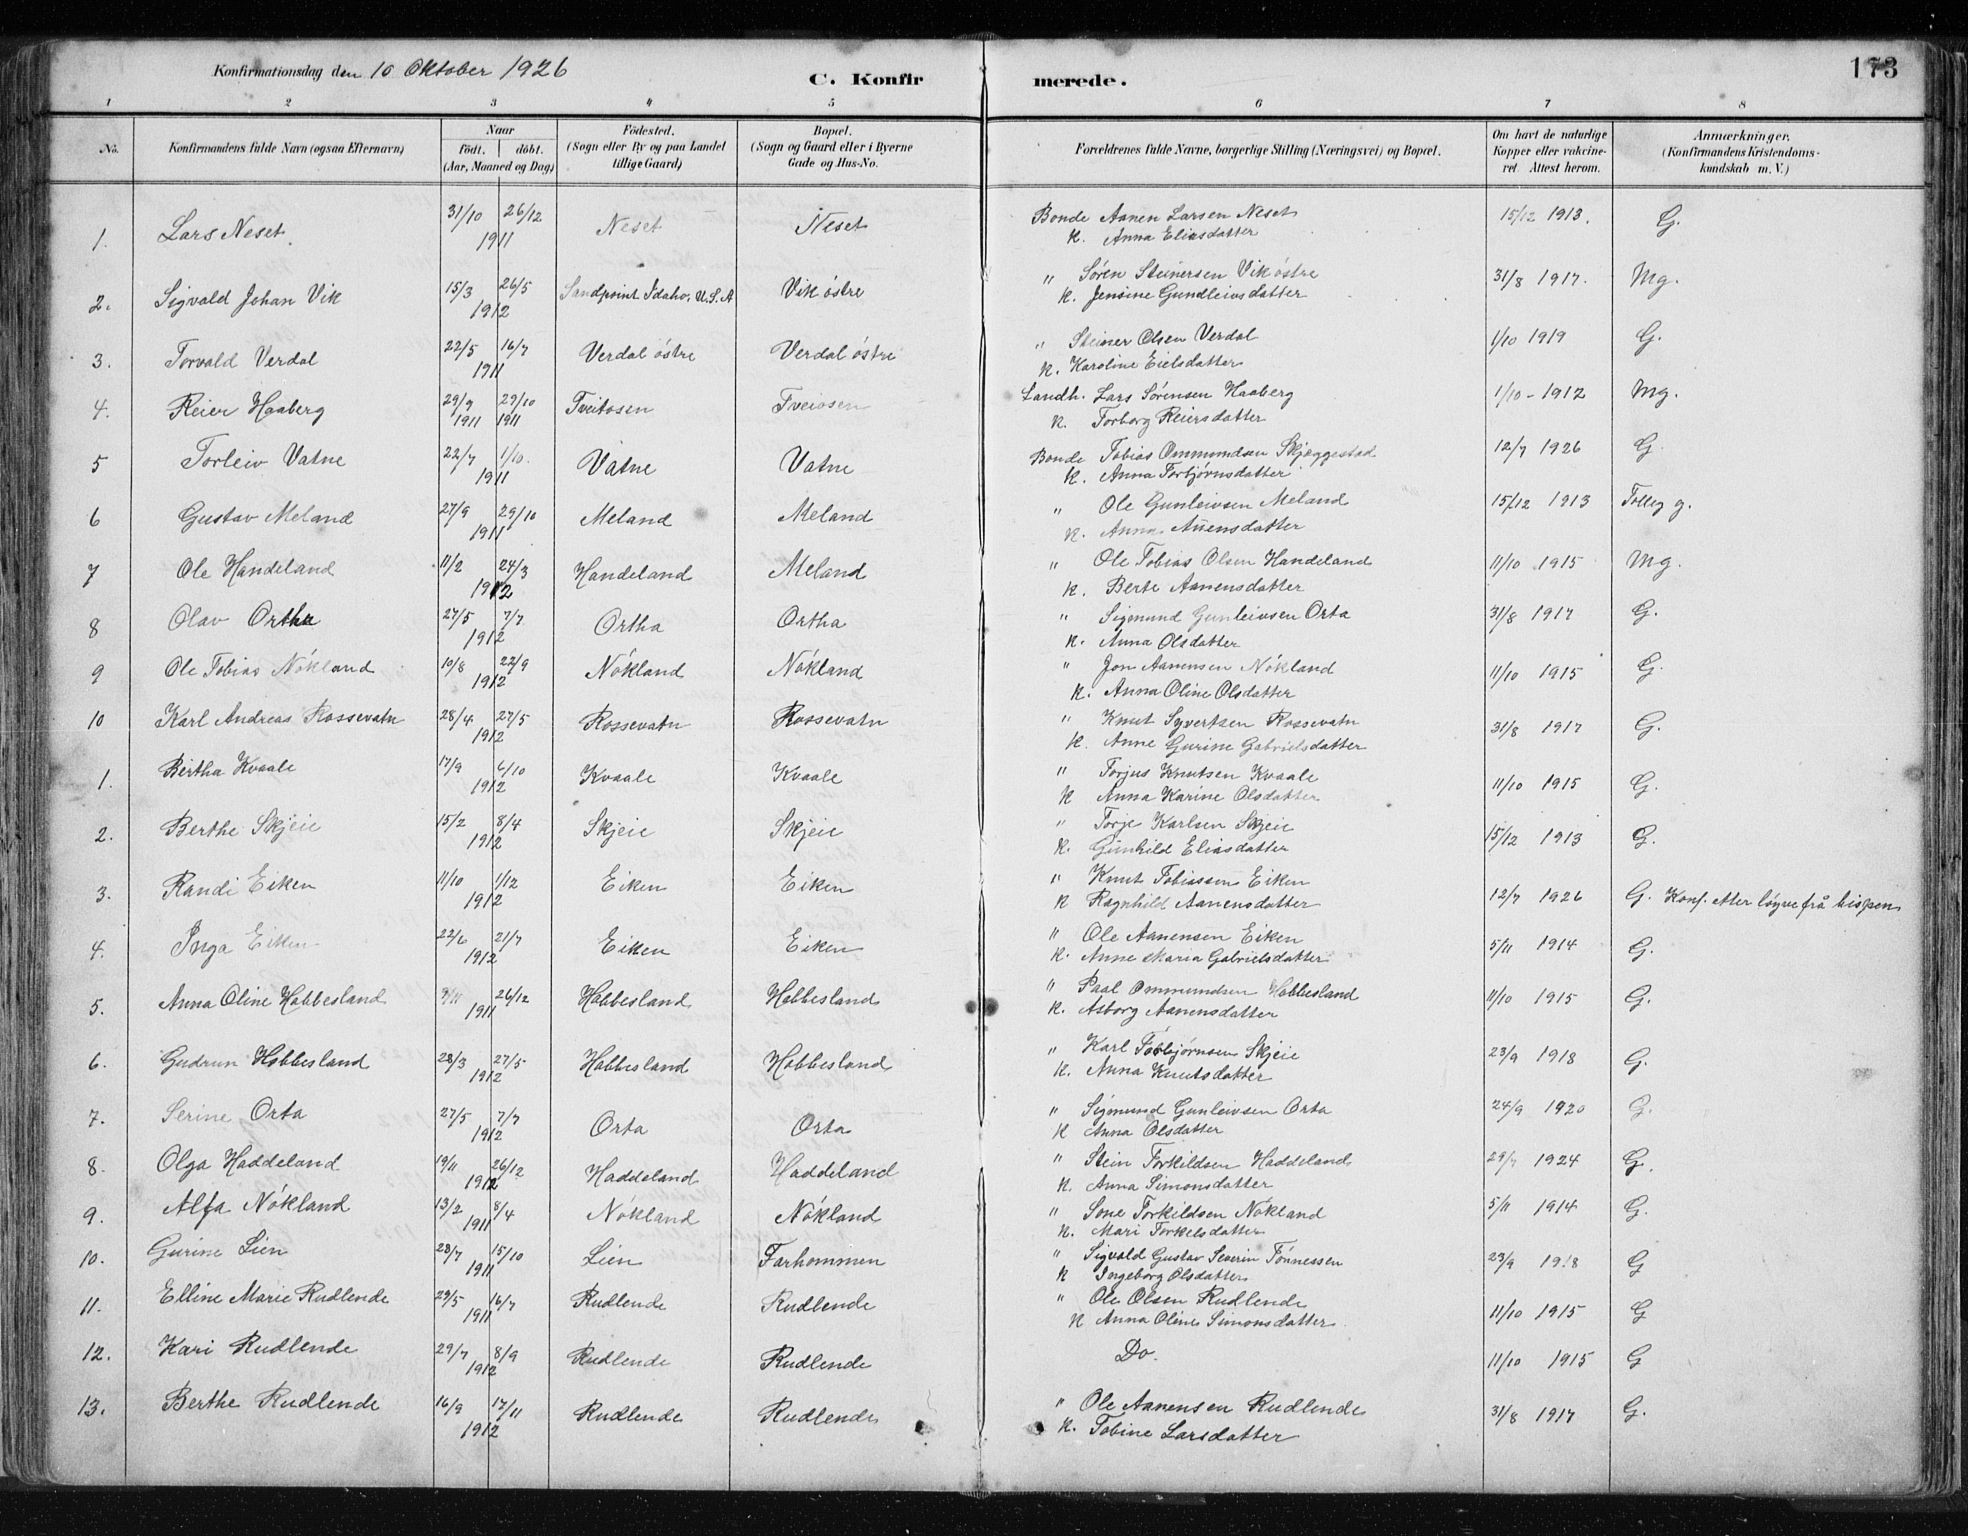 Konfirmationsdag den 10 Oktober 1926 C. Konfir merede. 173
1 2 3 4 5 6 7 8
No. Konfirmandens fulde Navn (ogsaa Efternavn) Naar født. døbt. (Aar, Maaned og Dag) Fødested. (Sogn eller By og paa Landet tillige Gaard) Bopæl. (Sogn og Gaard eller i Byerne Gade og Hus-No. Forældrenes fulde Navne, borgerlige Stilling (Næringsvei) og Bopæl. Om havt de naturlige Kopper eller vakcineret. Attest herom. Anmærkninger. (Konfirmandens Kristendomskundskab m. V.)
1. Lars Neset 31/10 26/12 1911 Neset Neset Bonde Aanen Larsen Neset 15/12 1913. G.
K. Anna Eliasdatter
2. Sigvald Johan Vik 15/3 26/5 1912 Sandpoint Idaho, U.S.A Vik östre " Sören Steinersen Vik östre 31/8 1917. Mg.
K. Jensine Gundleivsdatter
3. Torvald Verdal 22/5 16/7 1911 Verdal östre Verdal östre " Steiner Olsen Verdal 1/10 1919 G.
K. Karoline Eielsdatter
4. Reier Haaberg 29/9 1911 29/10 1911 Tveitosen Tveiosen Landh. Lars Sørensen Haaberg 1/10 - 1912 Mg.
K. Torborg Reiersdatter
5 Torleiv Vatne 22/7 1/10. 1911 Vatne Vatne Bonde Tobias Ommundsen Skjeggestad 12/7 1926 G.
K. Anna Torbjörnsdatter
6 Gustav Meland 27/9 29/10 1911 Meland Meland " Ole Gunleivsen Meland 15/12 1913 g.
K. Anna
7 Ole Handeland 11/2 24/3 1912 Handeland Meland " Ole Tobias Olsen Handeland 11/10 1915 Mg.
K. Berte Aanensdatter
8 Olav Ortha 27/5 7/7 1912 Ortha Ortha " Sigmund Gunleivsen Orta 31/8 1917 G.
K. Anna Olsdatter
9 Ole Tobias Nökland 10/8 22/9 1912 Nökland Nökland " Jon Aanensen Nökland 11/10 1915 G.
K. Anna Oline Olsdatter
10 Karl Andreas Rossevatn 28/4 27/5 1912 Rossevatn Rossevatn " Knut Syvertsen Rossevatn 31/8 1917 G.
K. Anne Gurine Gabrielsdatter
1. Bertha Kvaale 17/9 6/10 1912 Kvaale Kvaale " Torjus Knutsen Kvaale 11/10 1915 G.
K Anna Karine Olsdatter
2. Berthe Skjeie 15/2 8/4 1912 Skjeie Skjeie " Torje Karlsen Skjeie 15/12 1913 G.
K. Gunhild Eliasdatter
3. Randi Eiken 11/10 1/12 1912 Eiken Eiken " Knut Tobiassen Eiken 12/7 1926 G. Konf. etter løyve frå bispen
K Ragnhild Aanensdatter
4. Inga Eiken 22/6 21/7 1912 Eiken Eiken " Ole Aanensen Eiken 5/11 1914 G.
K. Anne Maria Gabrielsdatter
5. Anna Oline Hobbesland 9/11 26/12 1911 Hobbesland Hobbesland " Paal Ommundsen Hobbesland 11/10 1915 G.
K. Asborg Aanensdatter
6. Gudrun Hobbesland 28/3 27/5 1912 Hobbesland Hobbesland " Karl Torbjørnsen Skjeie 23/9 1918 G.
K. Anna Knutsdatter
7. Serine Orta 27/5 7/7 1912 Orta Orta " Sigmund Gunleivsen Orta 24/9 1920 G.
K Anna Olsdatter
8. Olga Haddeland 19/11 26/12 1912 Haddeland Haddeland " Stein Torkildsen Haddeland 29/7 1924 G.
K. Anna Simonsdatter
9. Alfa Nökland 13/2 8/4 1911 Nökland Nökland " Sone Torkildsen Nökland 5/11 1914 G.
K. Mari Torkelsdatter
10. Gurine Lien 23/7 15/10 1911 Lien Farhommen " Sigvald Gustav Severin Tönnessen 23/9 1918 G
K Ingeborg Olsdatter
11. Elline Marie Rudlende 29/5 16/7 1911 Rudlende Rudlende " Ole Olsen Rudlende 11/10 1915 G
K Anna Oline Simonsdatter
12. Kari Rudlende 29/7 8/9 1912 Rudlende Rudlende Do. 11/10 1915 G
13. Berthe Rudlende 16/9 17/11 1912 Rudlende Rudlende " Ole Aanensen Rudlende 31/8 1917 G.
K. Tobine Larsdatter